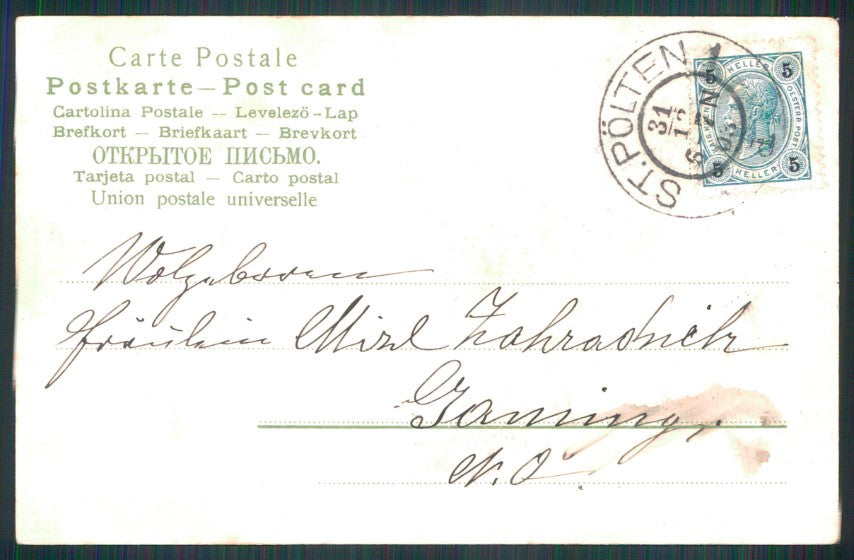 Carte Postale
Postkarte — Post card
Cartolina Postale — Levelező-Lap
Brefkort — Briefkaart — Brevkort
ОТКРЫТОЕ ПИСЬМО.
Tarjeta postal — Carto postal
Union postale universelle
ST. PÖLTEN 1
31
12
6-7N
5 HELLER 5
OESTERR. POST
5 HELLER 5
Wolgeboren
Fräulein Mizl Zahradnik
Gaming,
N. Ö.